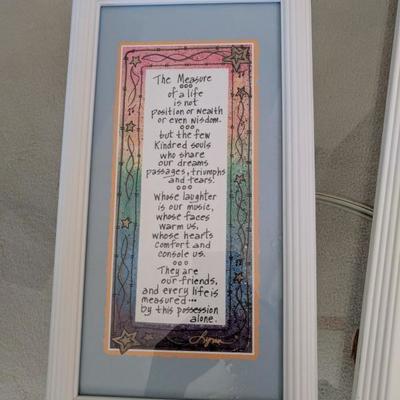 The Measure
of a life
is not
position or wealth
or even wisdom.
but the few
Kindred souls
who share
our dreams
passages, triumphs
and tears.
Whose laughter
is our music,
whose faces
warm us,
whose hearts
comfort and
console us.
They are
our friends,
and every life is
measured...
by this possession
alone.
Lynn